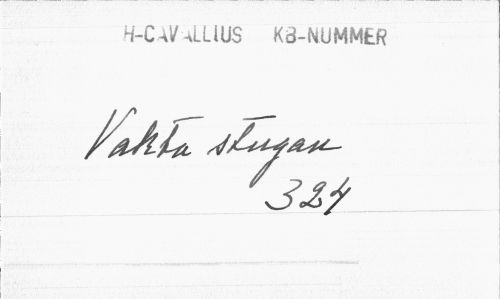 H-CAVALLIUS KB-NUMMER
Vakta stugan
324